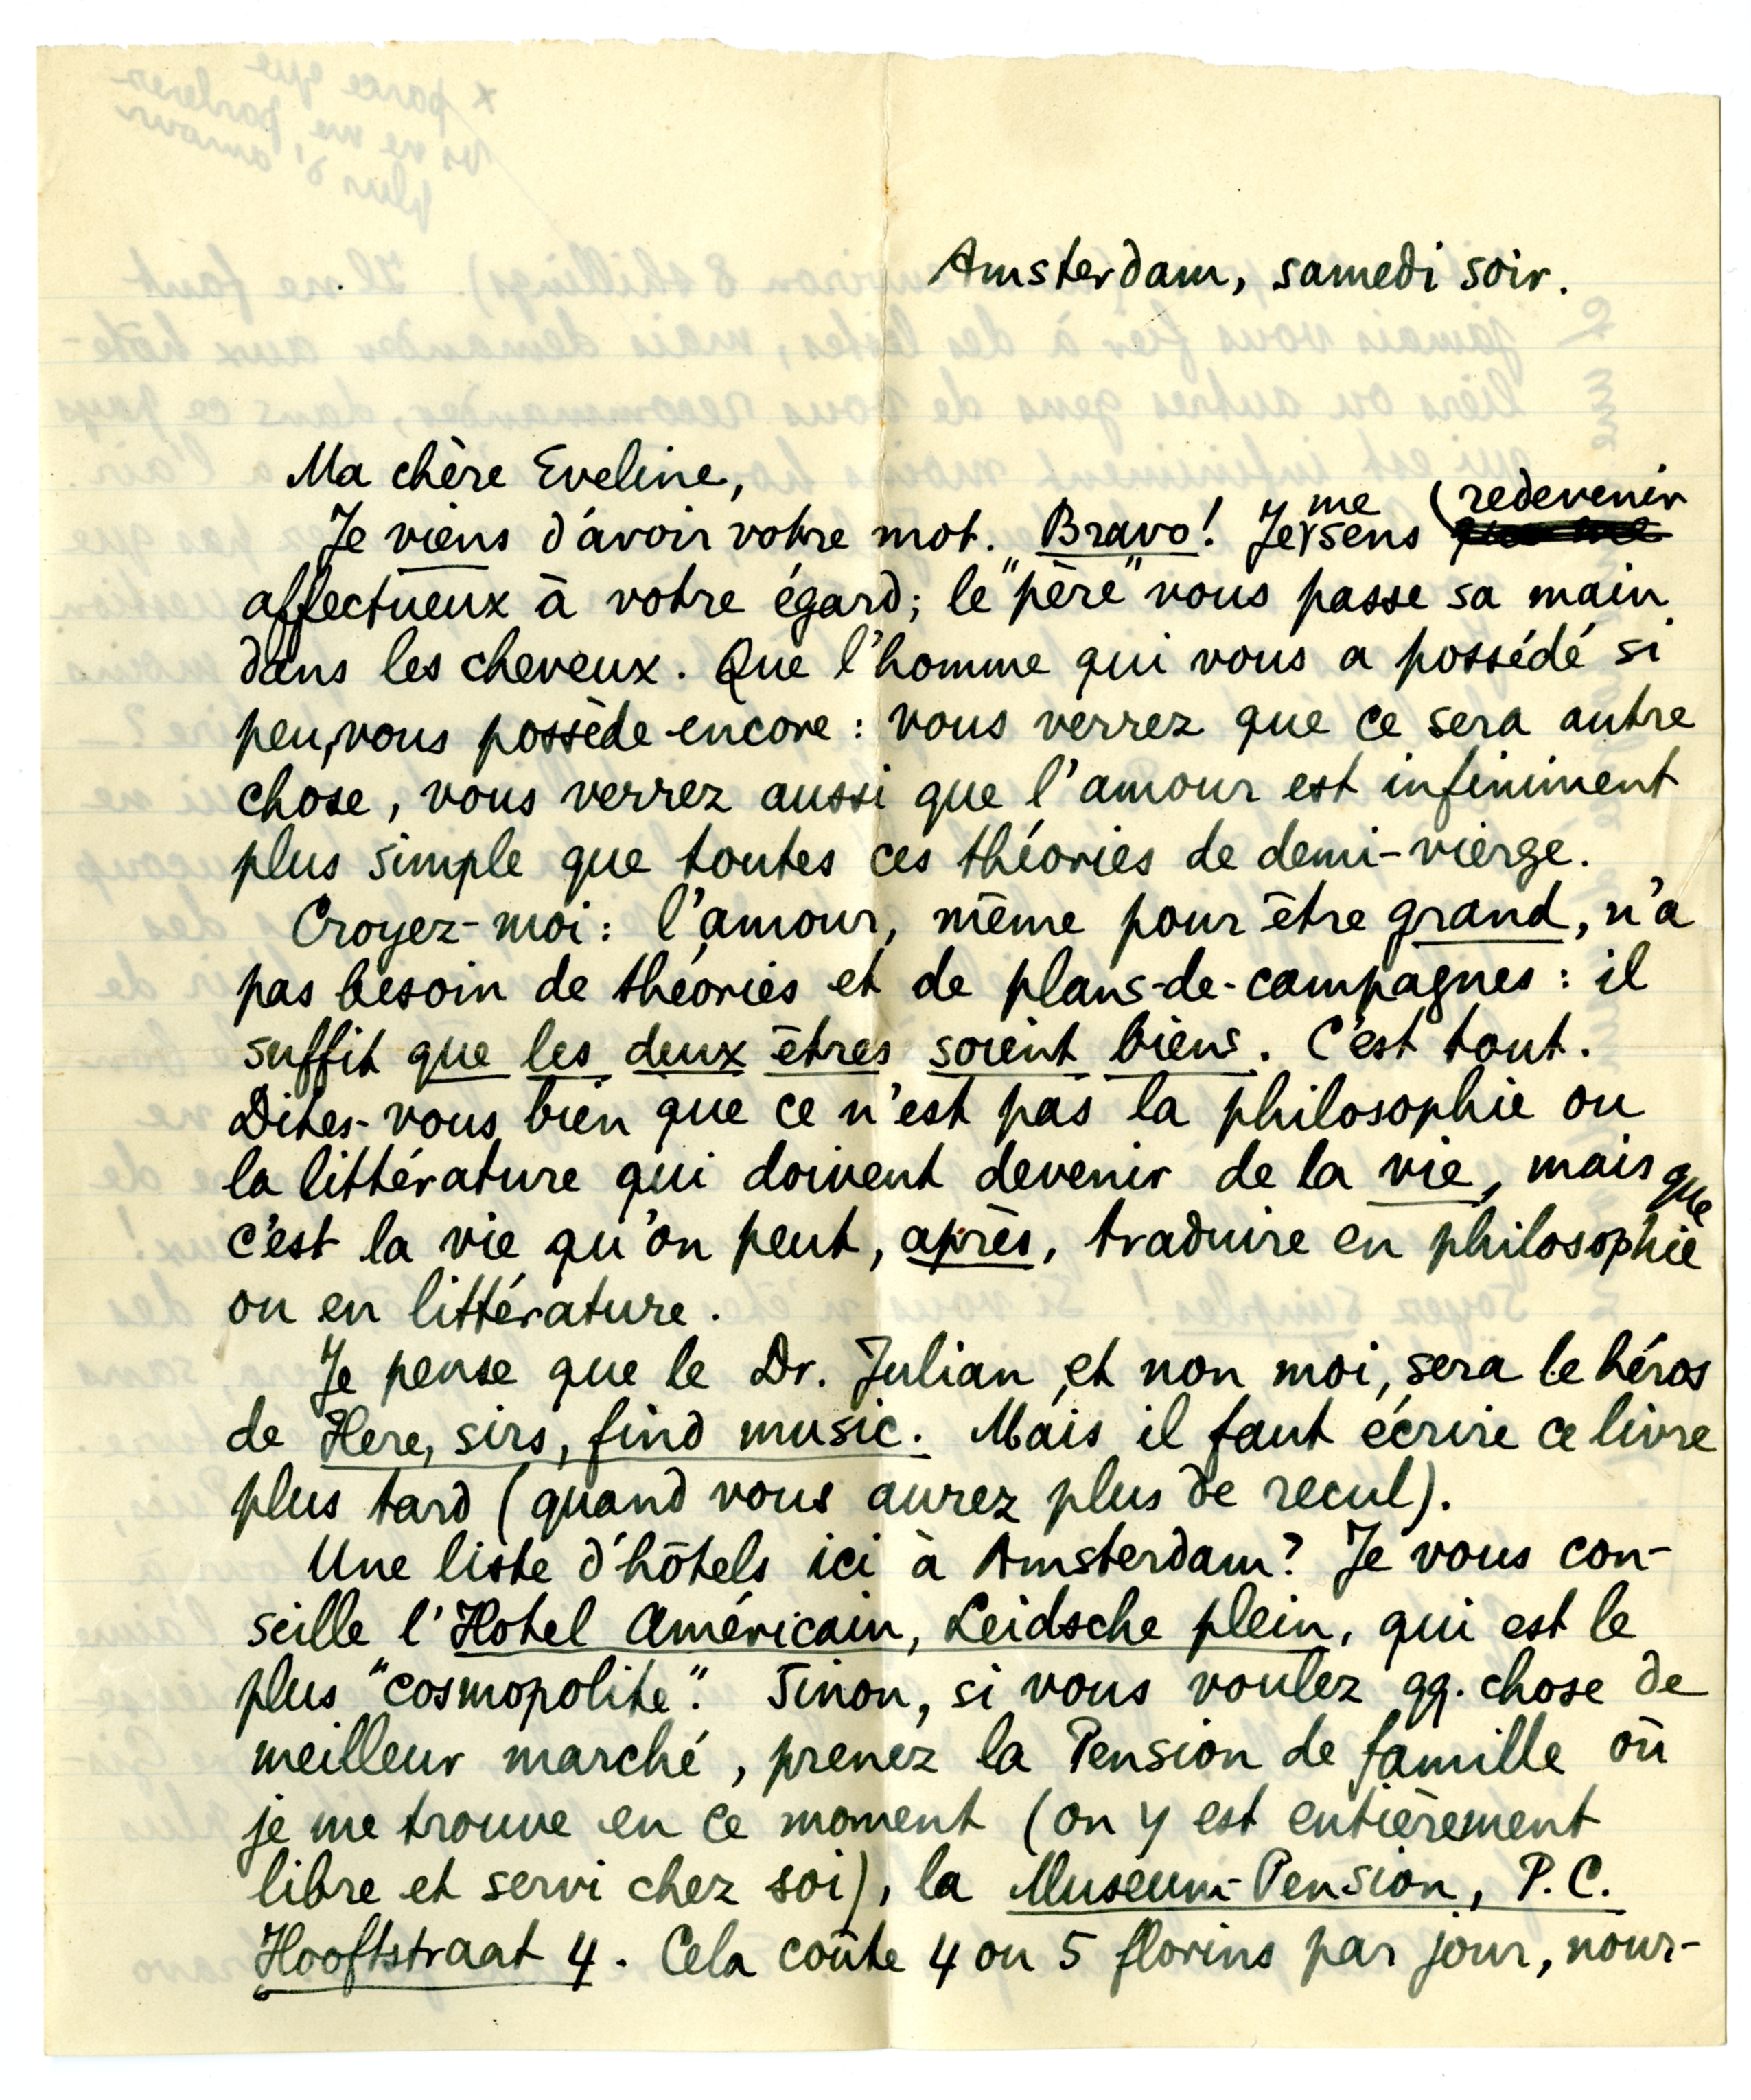 Amsterdam, samedi soir.
Ma chère Eveline,
Je viens d'avoir votre mot. Bravo! Je me sens redevenir
affectueux à votre égard; le "père" vous passe sa main
dans les cheveux. Que l'homme qui vous a possédé si
peu, vous possède encore: vous verrez que ce sera autre
chose, vous verrez aussi que l'amour est infiniment
plus simple que toutes ces théories de demi-vierge.
Croyez-moi: l'amour, même pour être grand, n'a
pas besoin de théories et de plans-de-campagnes: il
suffit que les deux êtres soient biens. C'est tout.
Dites-vous bien que ce n'est pas la philosophie ou
la littérature qui doivent devenir de la vie, mais que
c'est la vie qu'on peut, après, traduire en philosophie
ou en littérature.
Je pense que le Dr. Julian, et non moi, sera le héros
de Here, sirs, find music. Mais il faut écrire ce livre
plus tard (quand vous aurez plus de recul).
Une liste d'hôtels ici à Amsterdam? Je vous con-
seille l'Hotel Américain, Leidsche plein, qui est le
plus "cosmopolite". Sinon, si vous voulez qq. chose de
meilleur marché, prenez la Pension de famille où
je me trouve en ce moment (on y est entièrement
libre et servi chez soi), la Museum-Pension, P.C.
Hooftstraat 4. Cela coûte 4 ou 5 florins par jour, nour-